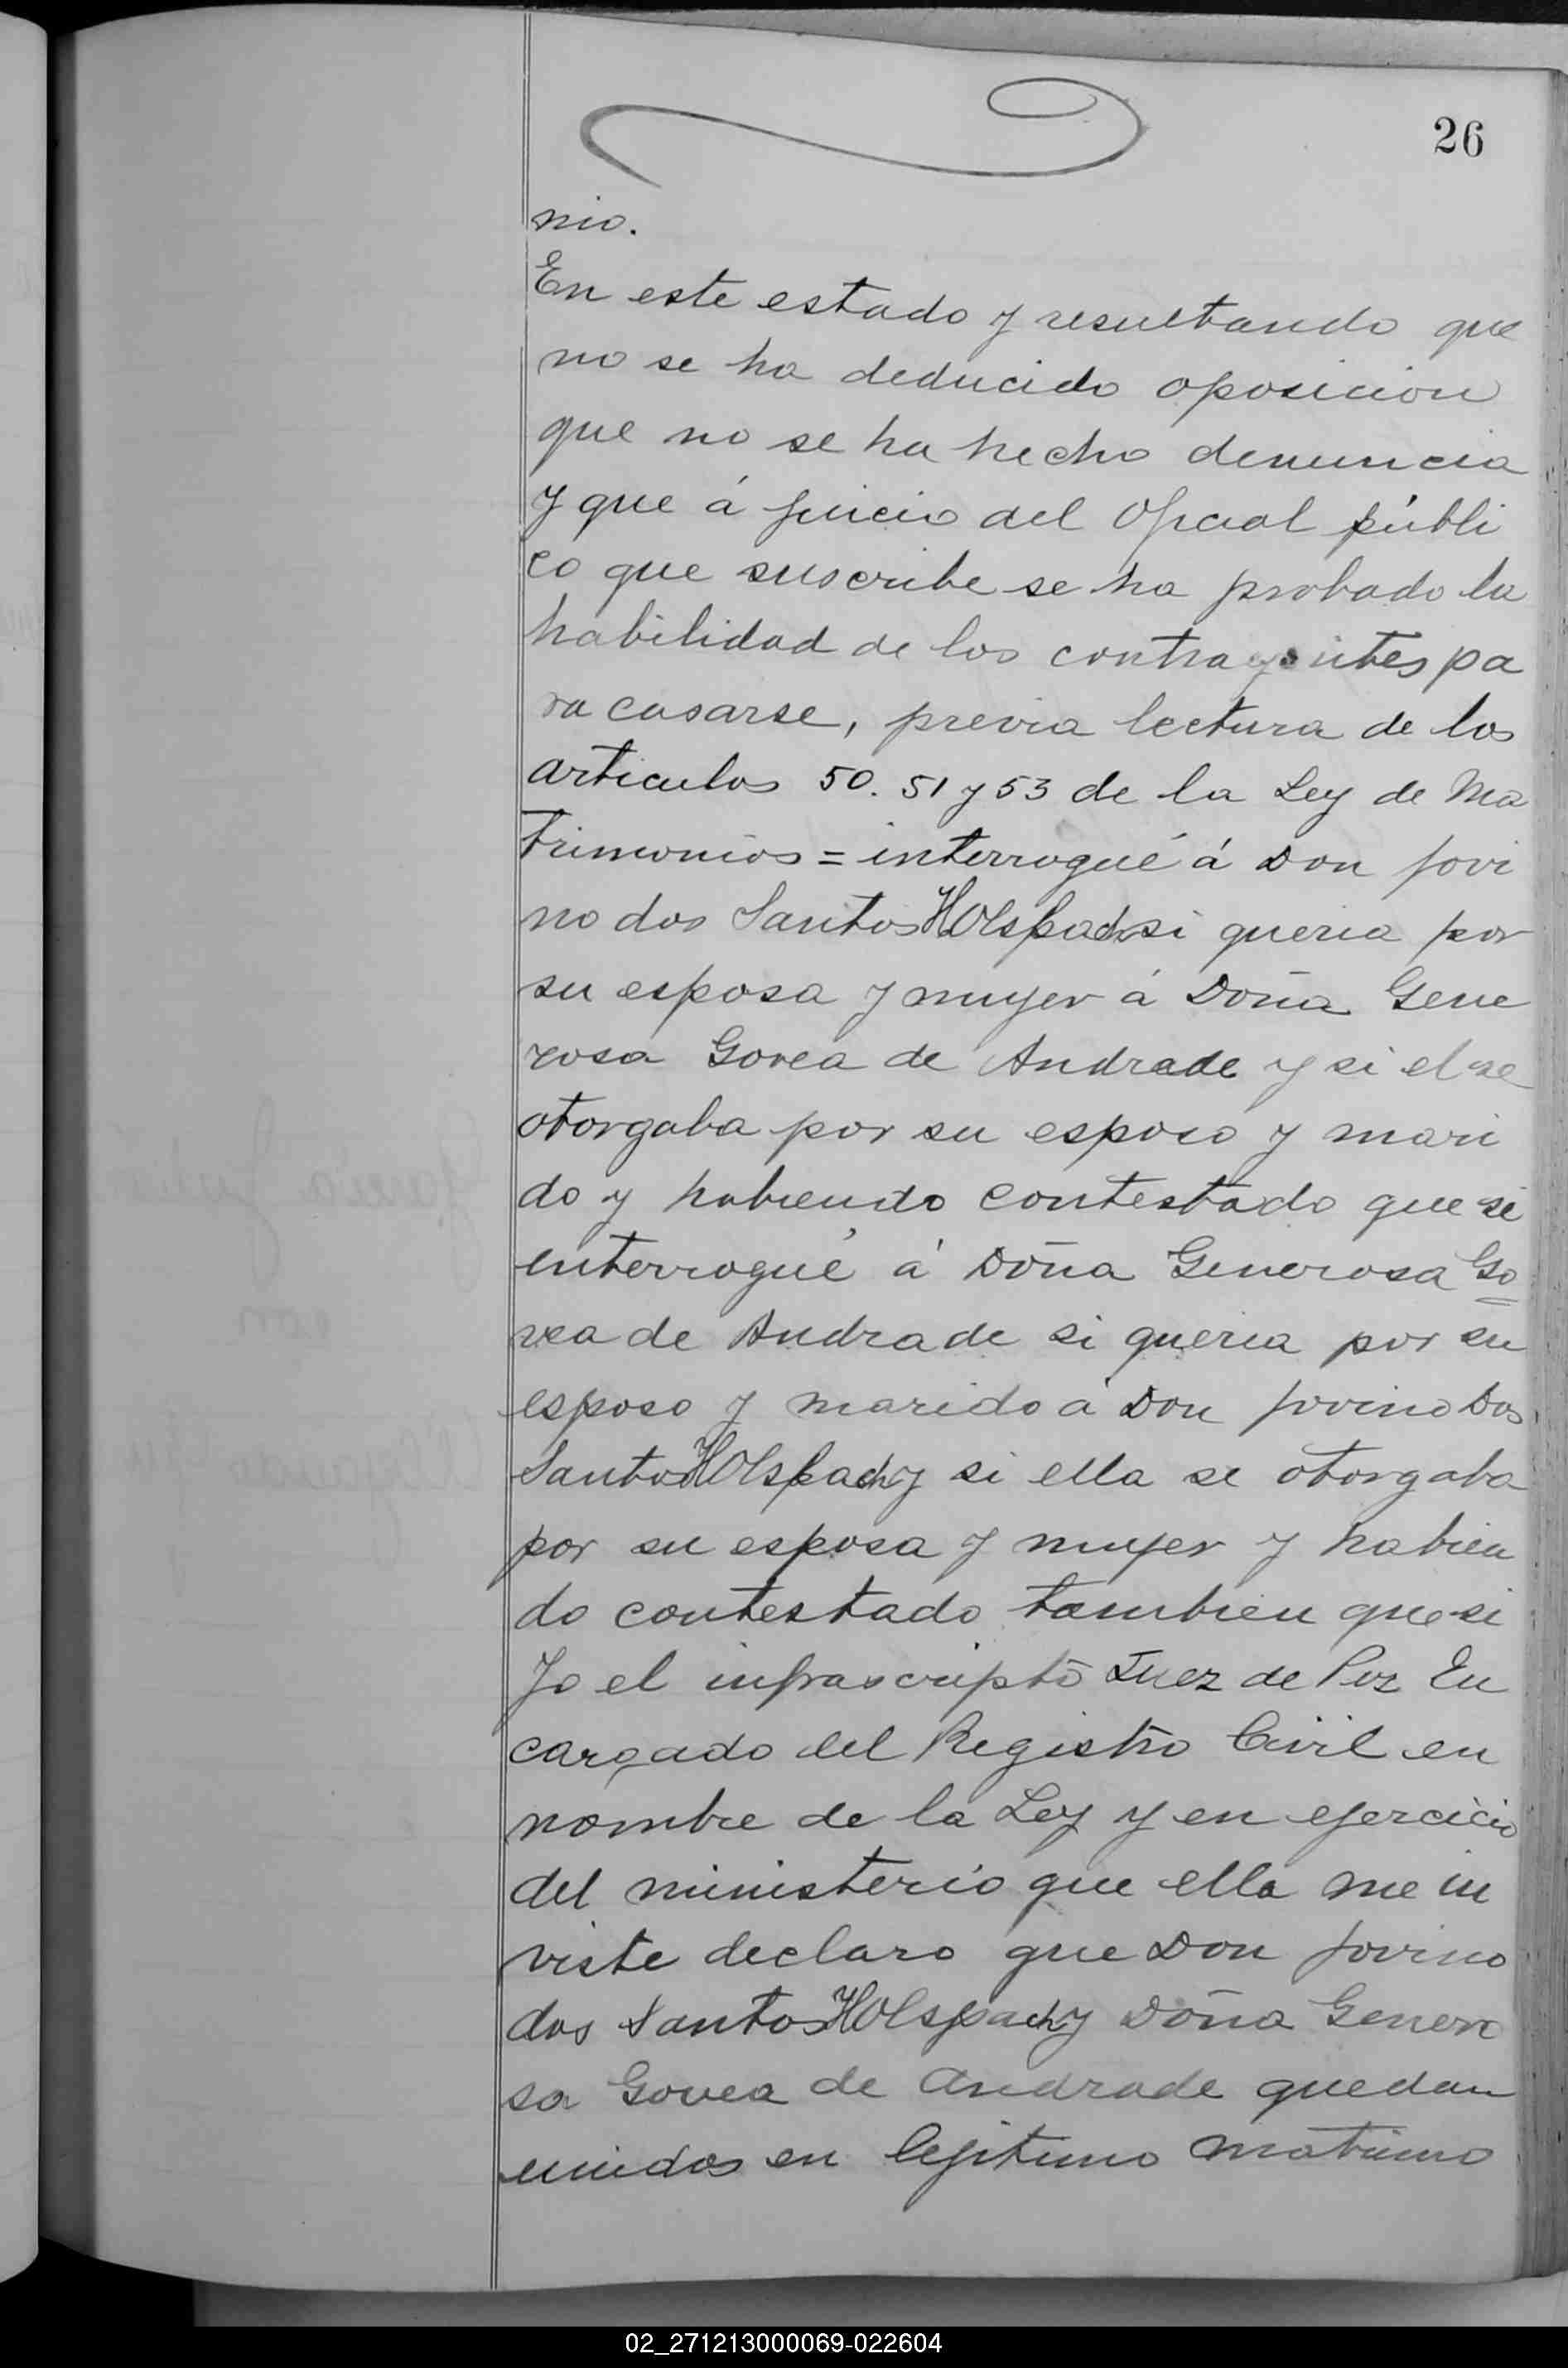 26
nio.
En este estado y resultando que
no se ha deducido oposicion
que no se ha hecho denuncia
y que á juicio del Oficial públi
co que suscribe se ha probado la
habilidad de los contrayentes pa
ra casarse, previa lectura de los
articulos 50. 51 y 53 de la Ley de Ma
trimonios = interrogué á Don Jovi
no dos Santos Holspach si queria por
su esposa y mujer á Doña Gene
rosa Govea de Andrade y si el se
otorgaba por su esposo y mari
do y habiendo contestado que si
interrogué á Doña Generosa Go
vea de Andrade si queria por su
esposo y marido á Don Jovino Dos
Santos Holspach y si ella se otorgaba
por su esposa y mujer y habien
do contestado tambien que si
Yo el infrascripto Juez de Paz En
cargado del Registro Civil en
nombre de la Ley y en ejercicio
del ministerio que ella me in
viste declaro que Don Jovino
dos Santos Holspach y Doña Genero
sa Govea de Andrade quedan
unidos en lejitimo matrimo
02_271213000069-022604